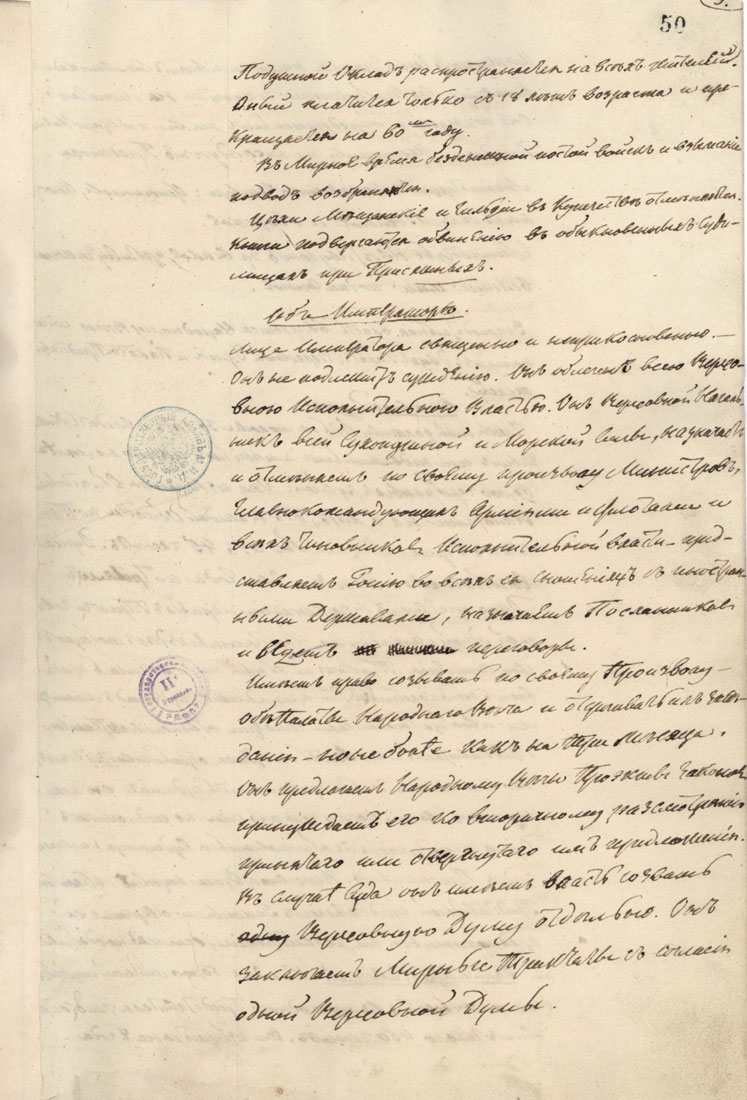 50
Подушной Окладъ распространяется на всѣхъ жителей.
Оный платится только съ 18 лѣтъ возраста и пре-
кращается на 60мъ году.
Въ Мирное время безденежной постой войскъ и взимание
подводъ возбраняется.
Цехи Мѣщанские и Гильдiи въ Купечествѣ отменяются.
подвергаются обвинению въ обыкновенныхъ Суди-
лищахъ при Присяжныхъ.
Объ Императорѣ.
Лице Императора священно и неприкосновенно. —
Онъ не подлежитъ суждению. Онъ облеченъ всею Верхо-
вною Исполнительною Властью. Онъ Верховной Началь-
никъ всей Сухопутной и Морской Силы, назначаетъ
и отменяетъ по своему произволу Министровъ,
Главнокомандующихъ Армиями и Флотами и
всехъ Чиновниковъ Исполнительной власти — пред-
ставляетъ Россию во всехъ ея сношенияхъ съ иностран-
ными Державами, назначаетъ Посланниковъ
и ведетъ переговоры.
Имеетъ право созывать по своему Произволу
обе Палаты Народнаго Веча и отсрочивать ихъ Засе-
дания — не более какъ на Три Месяца.
Онъ предлагаетъ Народному Вечу Проэкты Законовъ
принуждаетъ его ко вторичному разсмотрению
принятаго или отвергнутаго имъ предложения.
Въ случае Суда онъ имеетъ власть созвать
Верховную Думу отдельно. Онъ
заключаетъ Миры и Трактаты съ согласия
одной Верховной Думы.